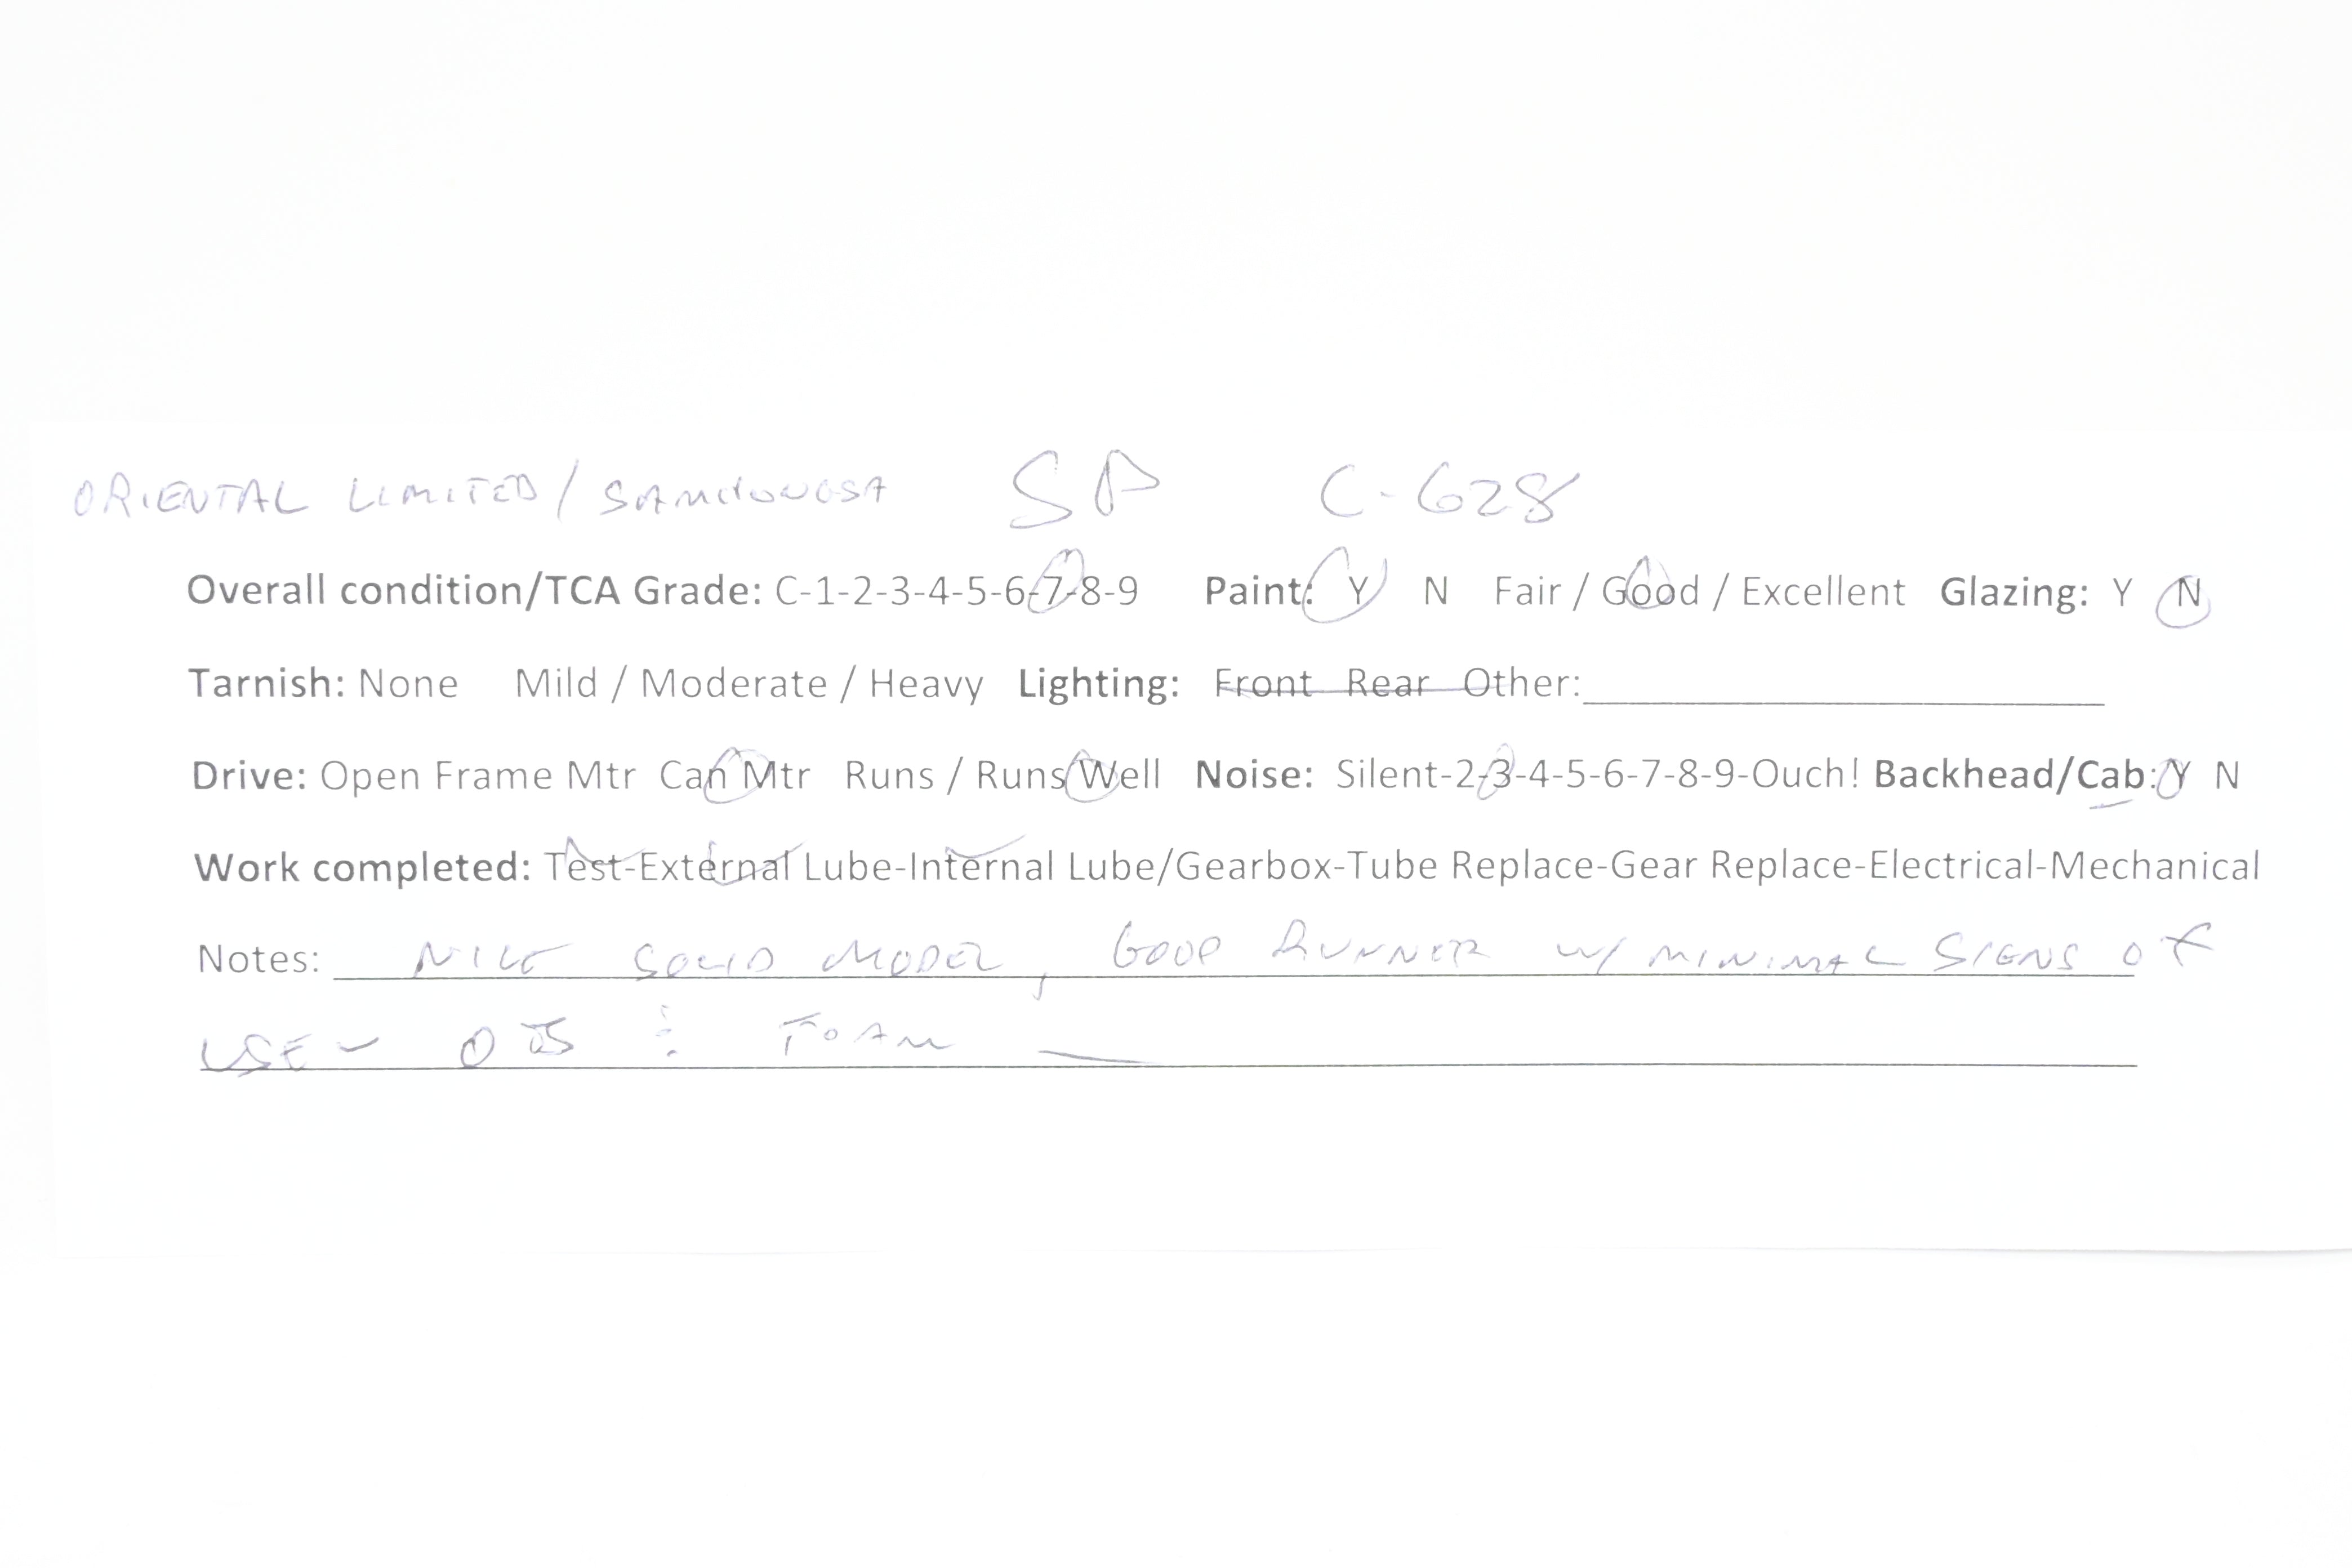 ORIENTAL LIMITED / SAMHONGSA SP C-628
Overall condition/TCA Grade: C-1-2-3-4-5-6-7-8-9 Paint: Y N Fair / Good / Excellent Glazing: Y N
Tarnish: None Mild / Moderate / Heavy Lighting: Front Rear Other:
Drive: Open Frame Mtr Can Mtr Runs / Runs Well Noise: Silent-2-3-4-5-6-7-8-9-Ouch! Backhead/Cab: Y N
Work completed: Test-External Lube-Internal Lube/Gearbox-Tube Replace-Gear Replace-Electrical-Mechanical
Notes: NICE SOLID MODEL, GOOD RUNNER W/ MINIMAL SIGNS OF
USE - OB & FOAM